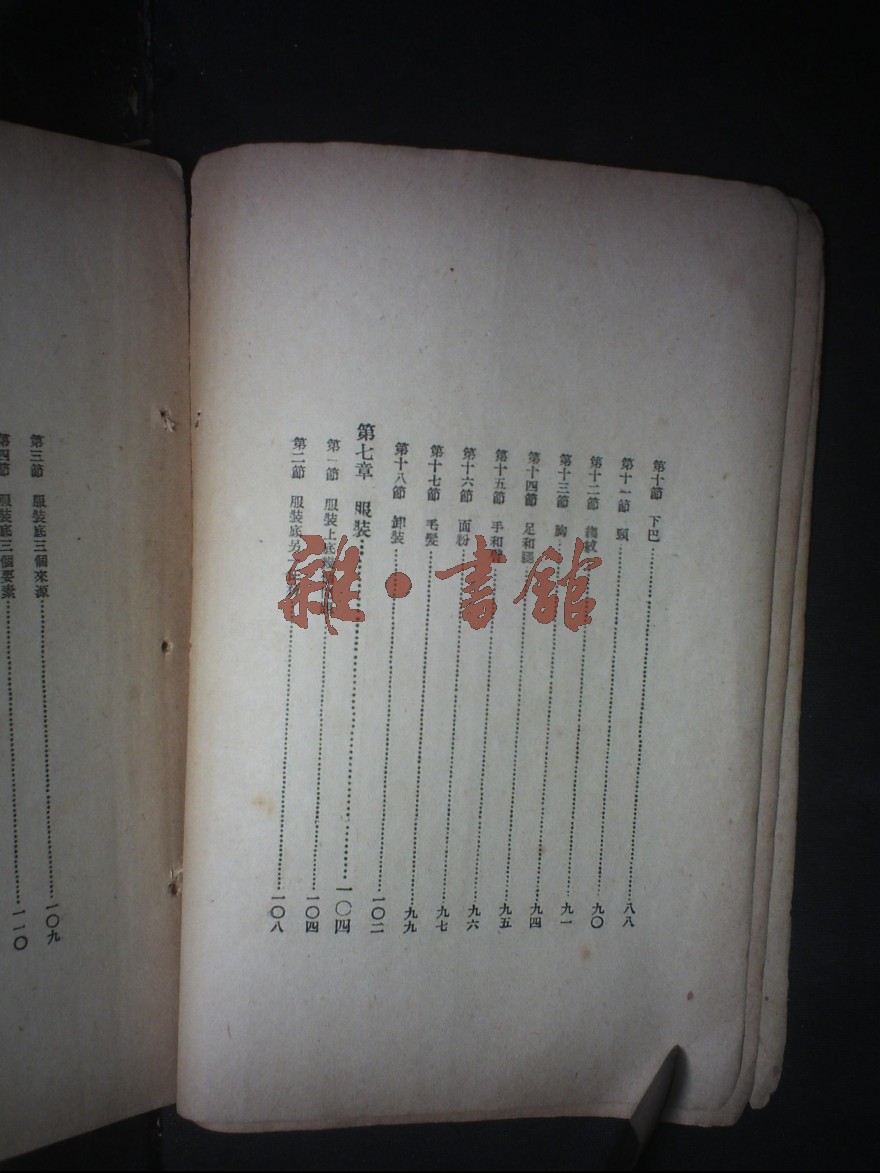 第十節 下巴……八八
第十一節 頸……九〇
第十二節……九一
第十三節 胸……九四
第十四節 足和腿……九五
第十五節 手和……九六
第十六節 面粉……九七
第十七節 毛髮……九九
第十八節 卸裝……一〇二
第七章 服裝……一〇四
第一節 服裝上底……一〇四
第二節 服裝底另一……一〇八
第三節 服裝底三個來源……一〇九
第四節 服裝底三個要素……一一〇
雜·書館